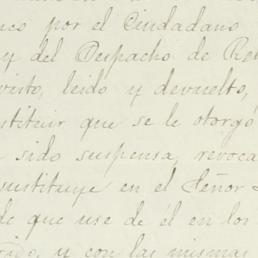 nco por el Ciudadano
y del Despacho de Re
visto, leido y devuelto,
stituir que se le otorgó
sido suspensa, revoca
sustituye en el Señor
de que use de él en los
y con las mismas